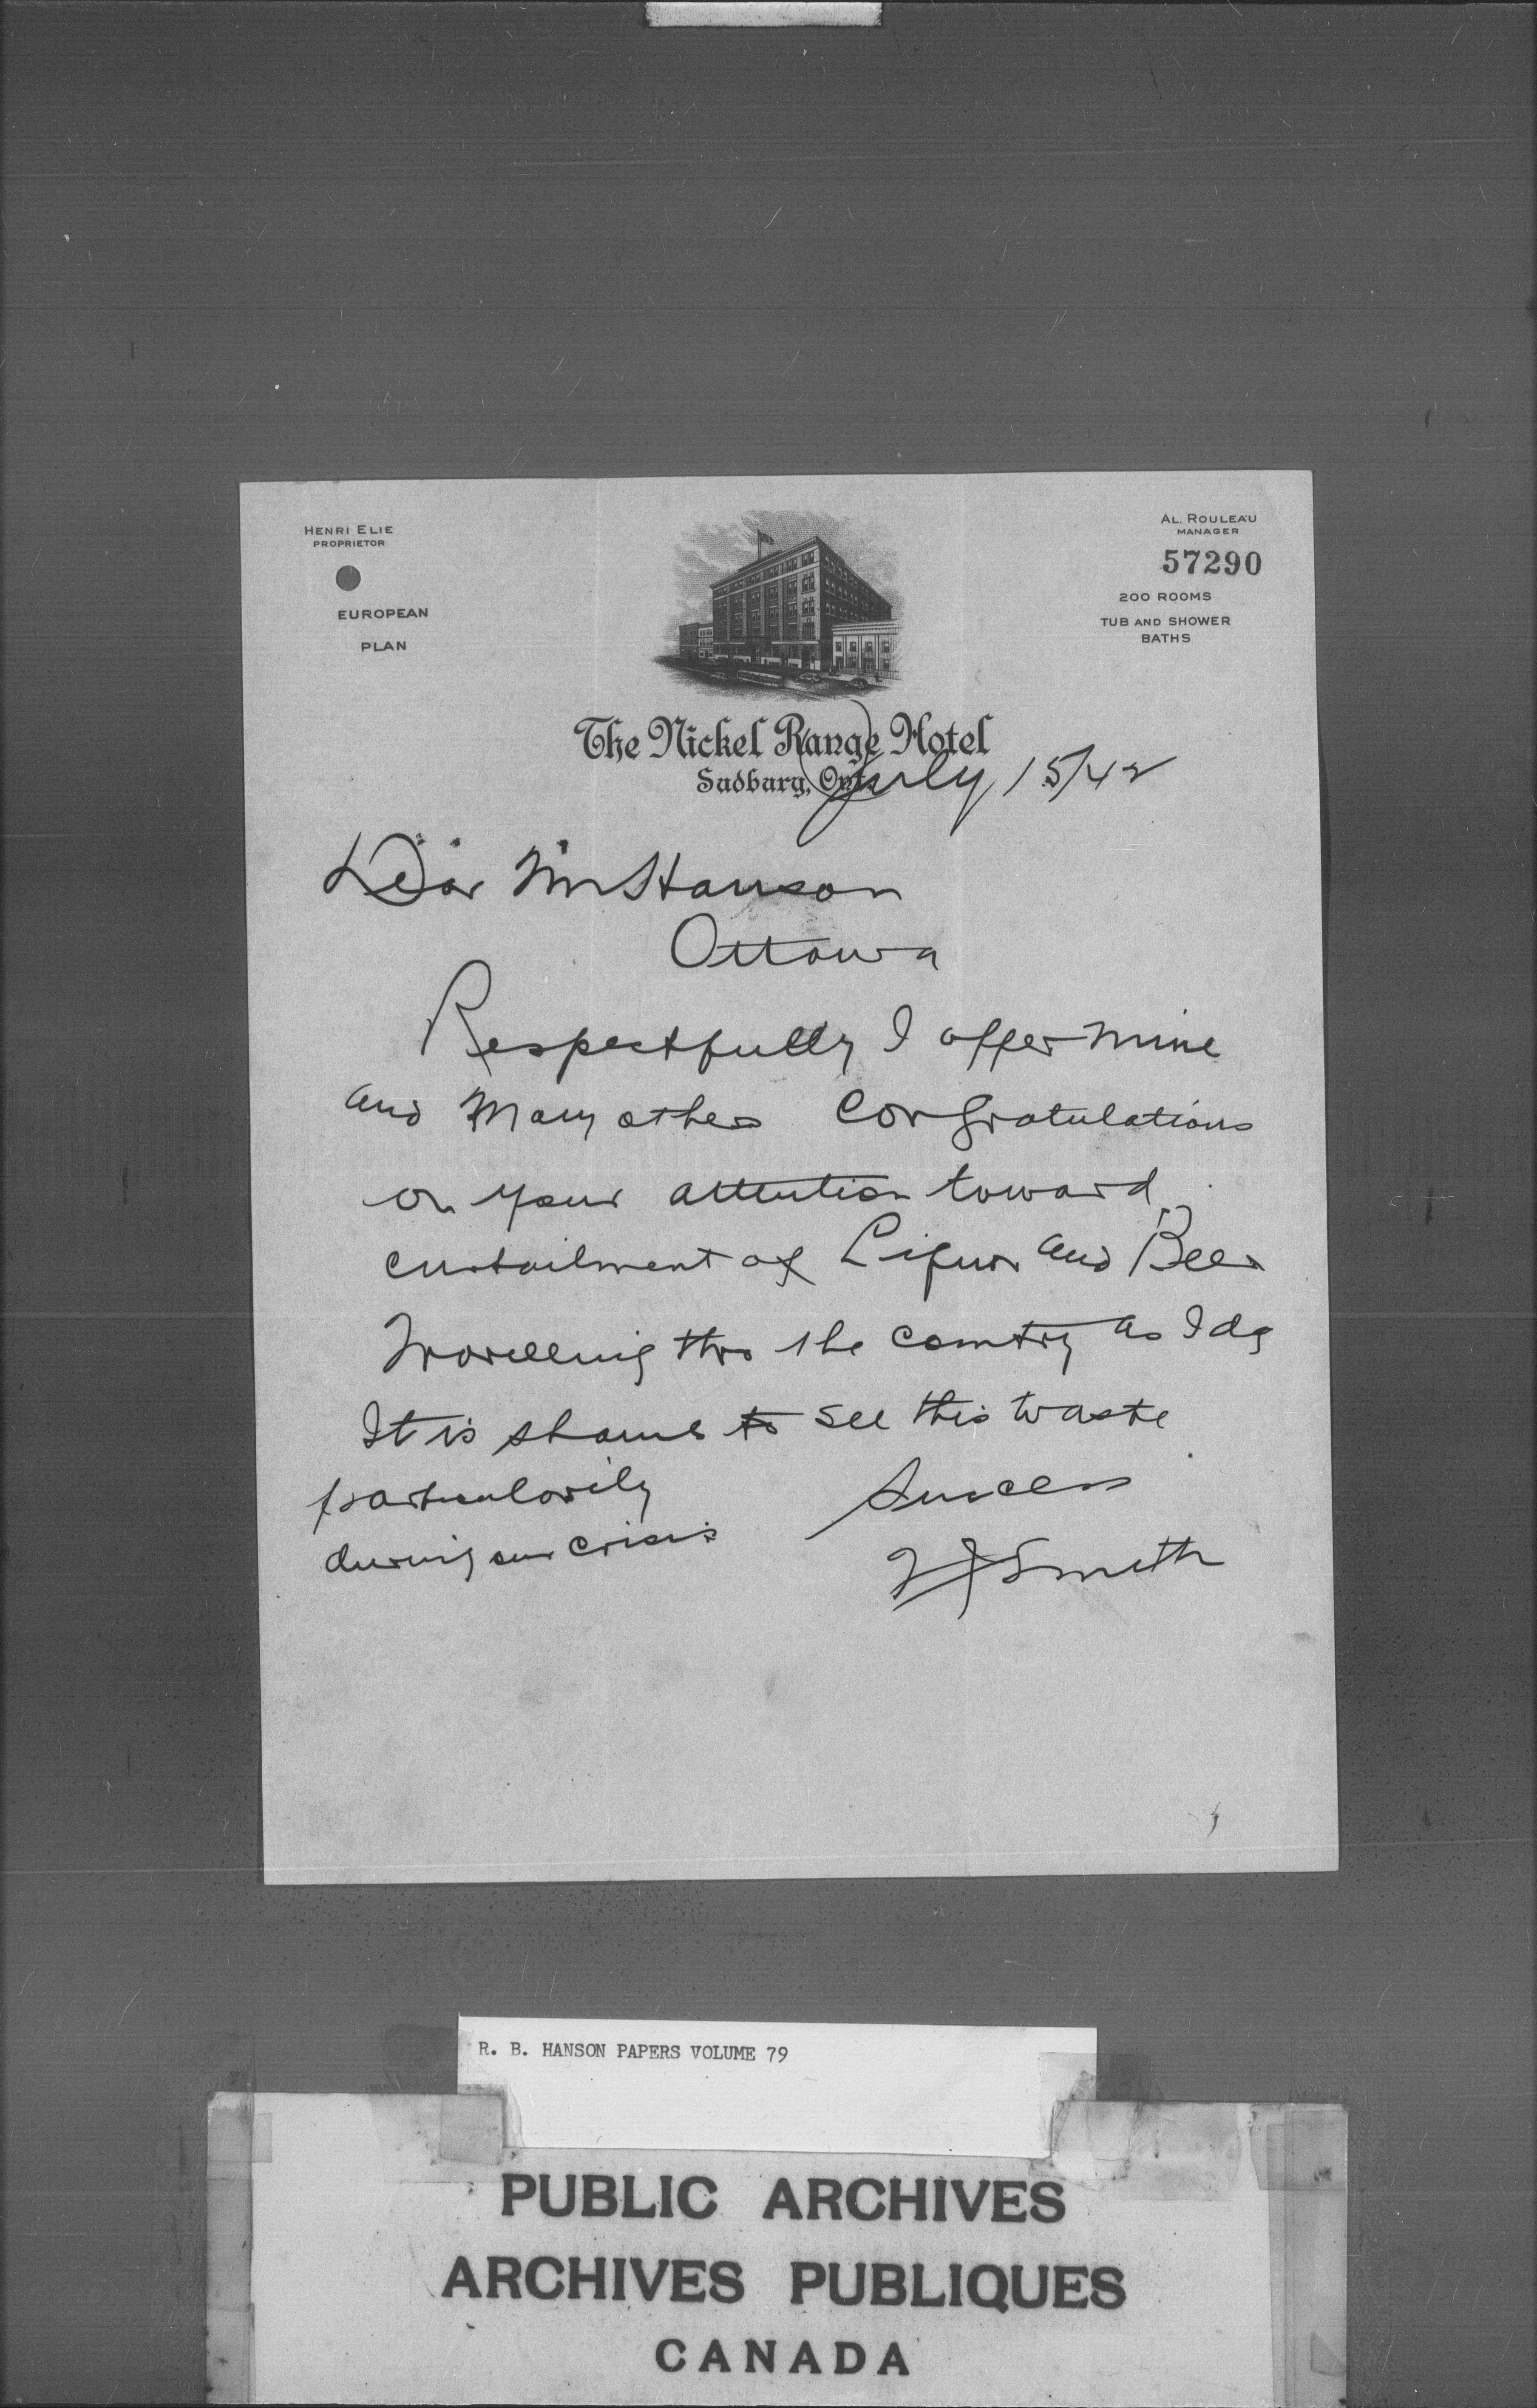 HENRI ELIE
PROPRIETOR
EUROPEAN
PLAN
AL. ROULEAU
MANAGER
57290
200 ROOMS
TUB AND SHOWER
BATHS
The Nickel Range Hotel
Sudbury, Ont.
July 15/42
Dear Mr Hanson
Ottawa
Respectfully I offer mine
and Many others congratulations
on your attention toward
curtailment of Liquor and Beer
Travelling thro the country as I do
It is shame to see this waste
particularily
during our crisis
Success
Smith
R. B. HANSON PAPERS VOLUME 79
PUBLIC ARCHIVES
ARCHIVES PUBLIQUES
CANADA